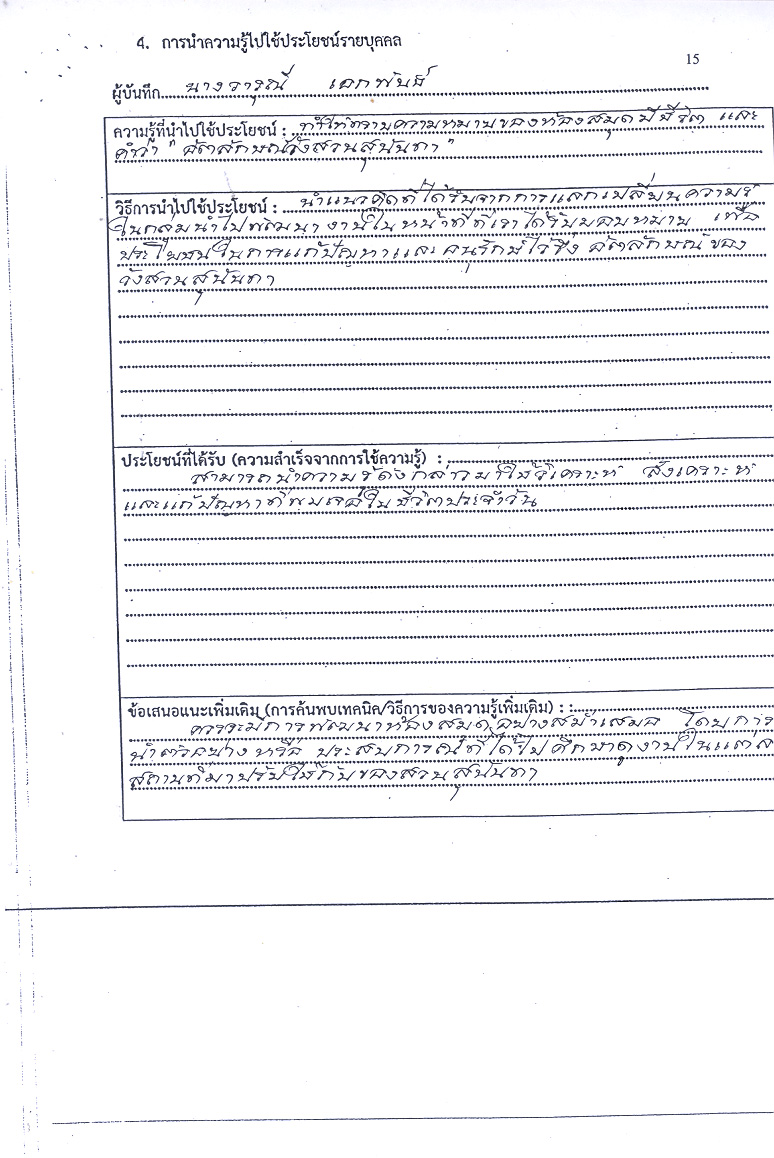 4. การนำความรู้ไปใช้ประโยชน์รายบุคคล
15
ผู้บันทึก....นางวารุณี เอกพันธ์
ความรู้ที่นำไปใช้ประโยชน์ : ทำให้ทราบความหมายของห้องสมุดมีชีวิต และ
คำว่า " อัตลักษณ์วังสวนสุนันทา "
วิธีการนำไปใช้ประโยชน์ : นำแนวคิดที่ได้รับจากการแลกเปลี่ยนความรู้
ในกลุ่มนำไปพัฒนางานในหน้าที่ที่เราได้รับมอบหมาย เพื่อ
ประโยชน์ในการแก้ปัญหาและอนุรักษ์ไว้ซึ่ง อัตลักษณ์ของ
วังสวนสุนันทา
ประโยชน์ที่ได้รับ (ความสำเร็จจากการใช้ความรู้) :
สามารถนำความรู้ดังกล่าวมาใช้วิเคราะห์ สังเคราะห์
และแก้ปัญหาที่พบเจอในชีวิตประจำวัน
ข้อเสนอแนะเพิ่มเติม (การค้นพบเทคนิค/วิธีการของความรู้เพิ่มเติม) : :
ควรจะมีการพัฒนาห้องสมุดอย่างสม่ำเสมอ โดยการ
นำตัวอย่าง หรือ ประสบการณ์ที่ได้ไปศึกษาดูงานในแต่ละ
สถานที่มาปรับใช้กับของสวนสุนันทา